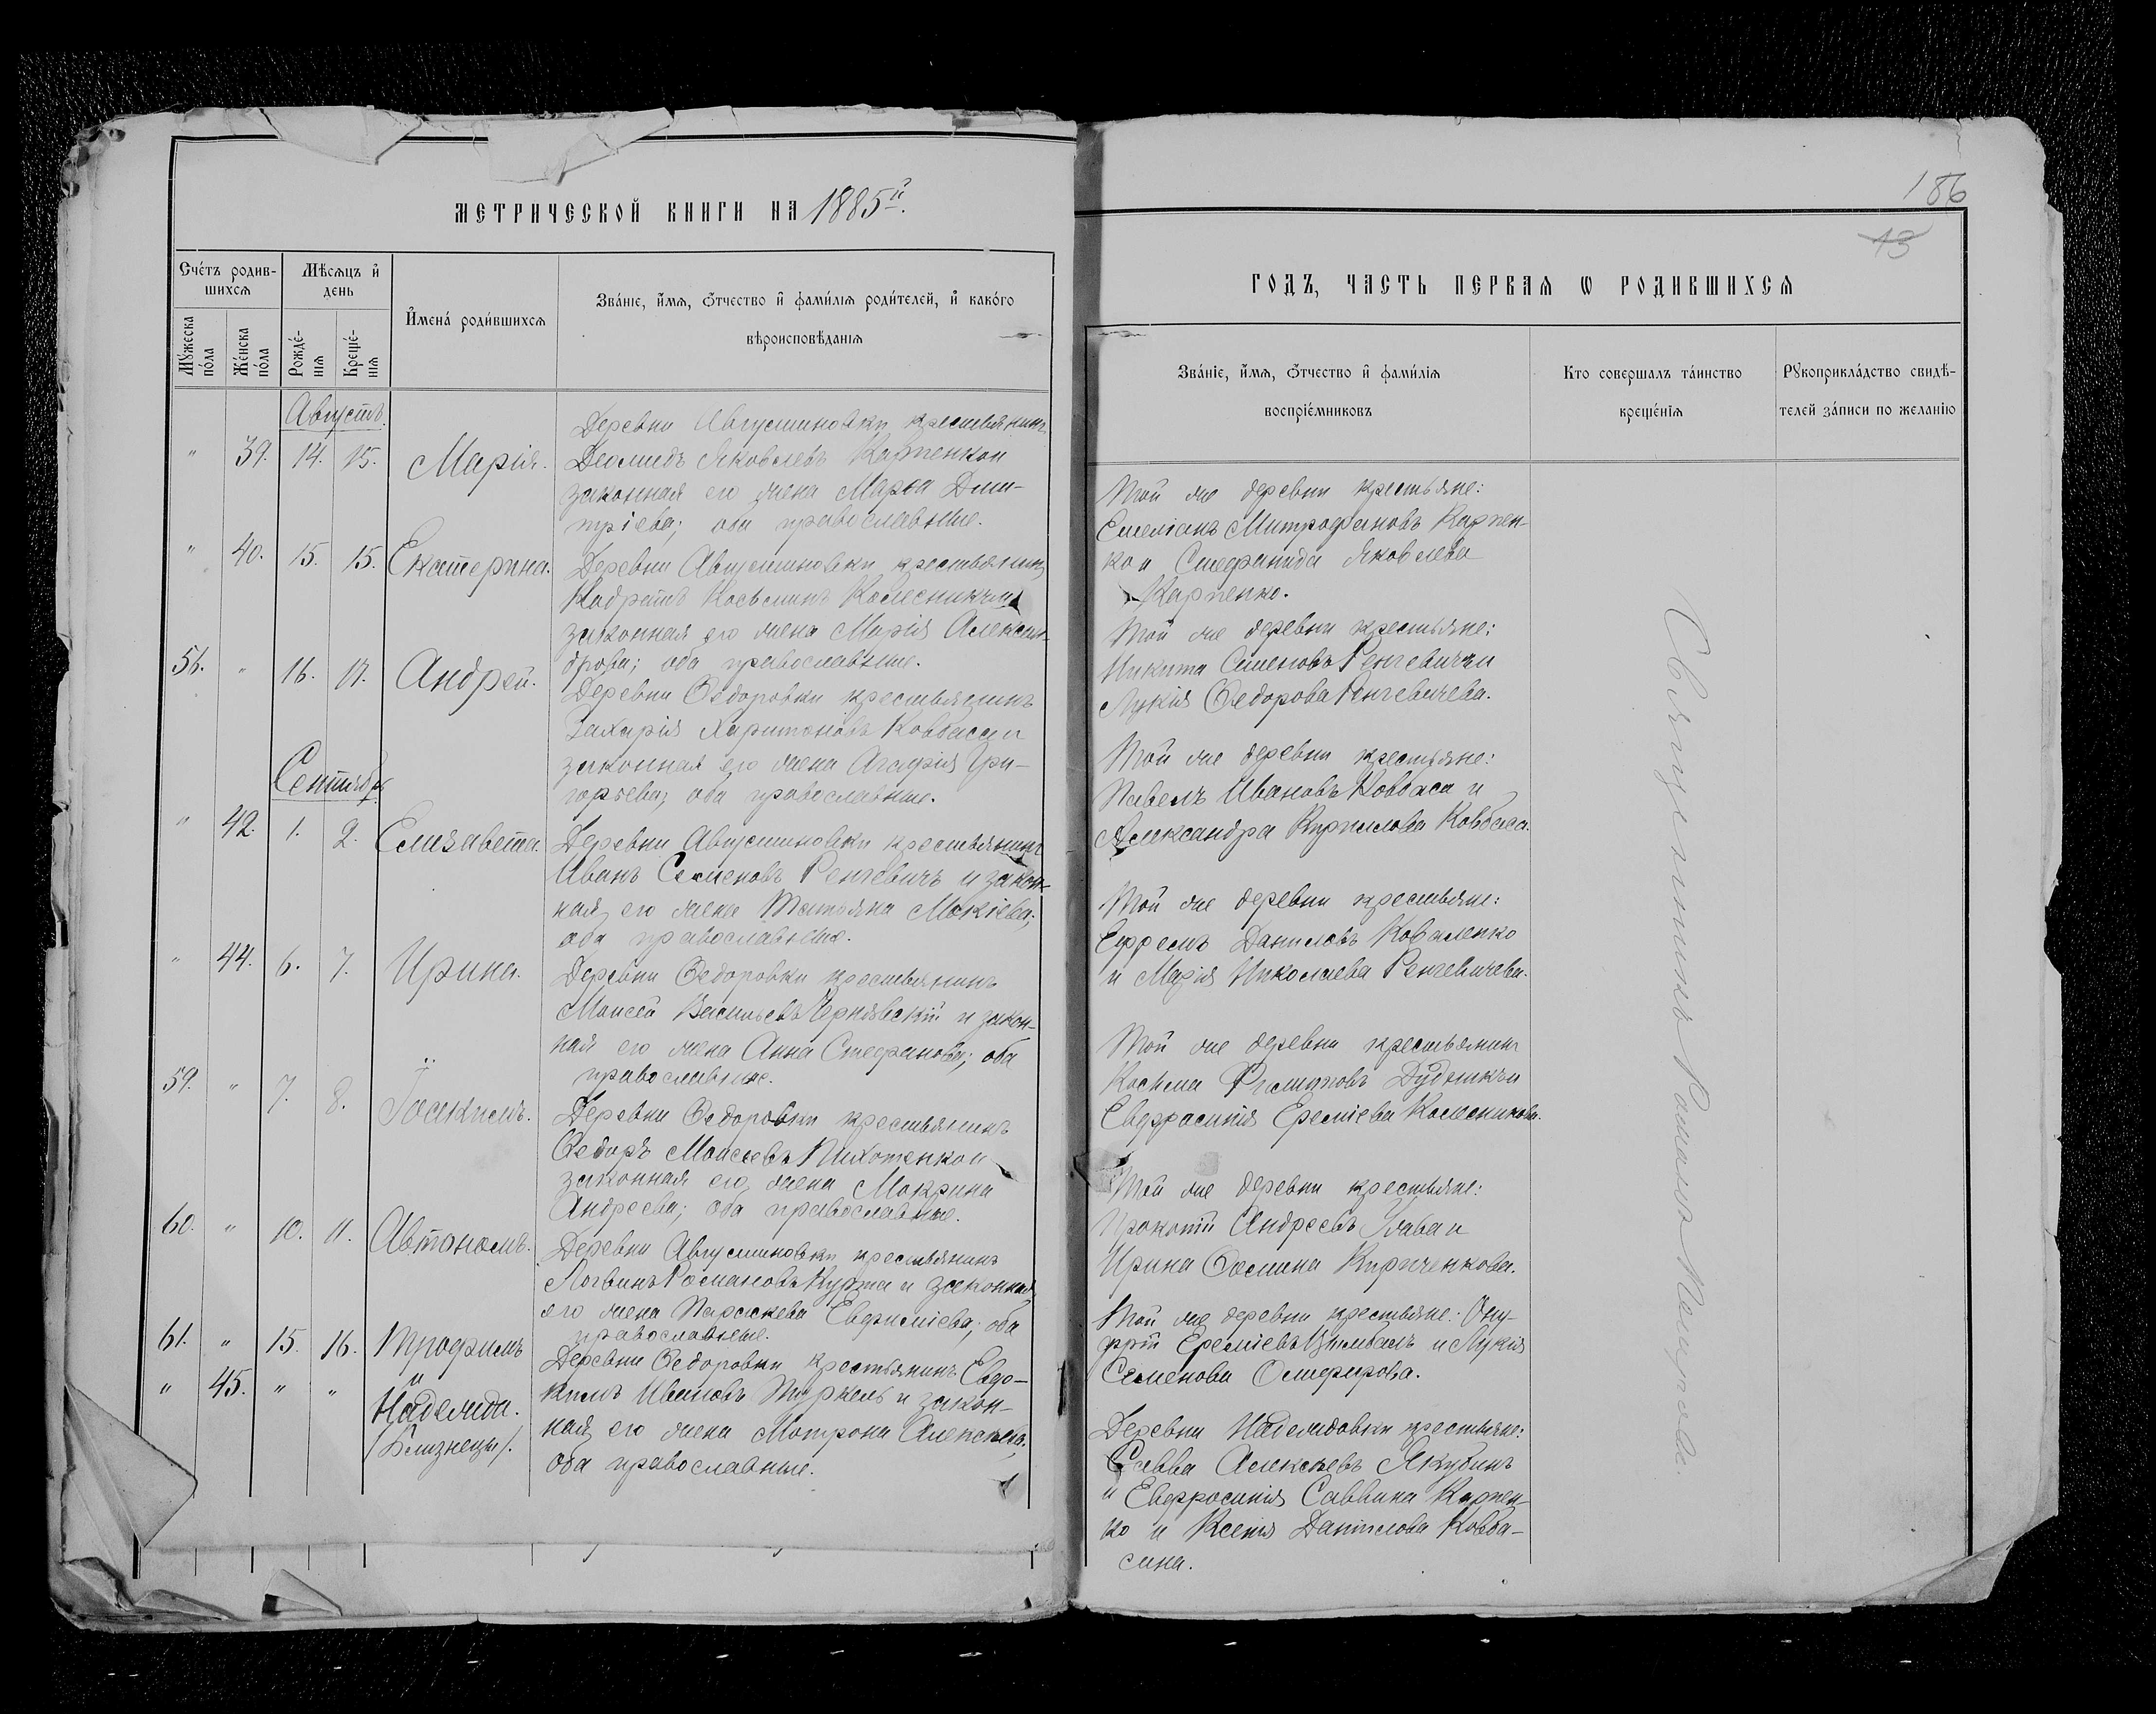 МЕТРИЧЕСКОЙ КНИГИ НА 1885й.
Счетъ родив-
шихся
Мѣсяцъ и
день
Имена родившихся
Званіе, имя, отчество и фамилія родителей, и какого
вѣроисповѣданія
Мужеска
пола
Женска
пола
Рожде-
нія
Креще-
нія
Августъ.
" 39. 14. 15. Марія.
Деревни Августиновки крестьянинъ
Деомидъ Яковлевъ Карпенко и
законная его жена Марѳа Дми-
тріева; оба православные.
" 40. 15. 15. Екатерина.
Деревни Августиновки крестьянинъ
Кодратъ Косьминъ Колесникъ и
законная его жена Марія Алексан-
дрова; оба православные.
56. " 16. 17. Андрей.
Деревни Ѳедоровки крестьянинъ
Захарія Харитоновъ Ковбаса и
законная его жена Агафія Гри-
горьева; оба православные.
Сентябрь
" 42. 1. 2. Елизавета.
Деревни Августиновки крестьянинъ
Иванъ Семеновъ Ренгевичъ и закон-
ная его жена Татьяна Мокіева;
оба православные.
" 44. 6. 7. Ирина.
Деревни Ѳедоровки крестьянинъ
Моисей Васильевъ Чернявскій и закон-
ная его жена Анна Стефанова; оба
православные.
59. " 7. 8. Іоакимъ.
Деревни Ѳедоровки крестьянинъ
Ѳедоръ Моисеевъ Пихотенко и
законная его жена Макрина
Андреева; оба православные.
60. " 10. 11. Автономъ.
Деревни Августиновки крестьянинъ
Логвинъ Романовъ Курта и законная
его жена Параскева Евфиміева; оба
православные.
61. " 15. 16. Трофимъ
и
" 45. " " Надежда.
/Близнецы/.
Деревни Ѳедоровки крестьянинъ Евдо-
кимъ Ивановъ и закон-
ная его жена Матрона Алексѣева;
оба православные.
186
13
ГОДЪ, ЧАСТЬ ПЕРВАЯ Ѡ РОДИВШИХСЯ
Званіе, имя, отчество и фамилія
воспріемниковъ
Кто совершалъ таинство
крещенія
Рукоприкладство свидѣ-
телей записи по желанію
Той же деревни крестьяне:
Емеліанъ Митрофановъ Карпен-
ко и Стефанида Яковлева
Карпенко.
Той же деревни крестьяне:
Никита Семеновъ Ренгевичъ и
Лукія Ѳедорова Ренгевичева.
Той же деревни крестьяне:
Павелъ Ивановъ Ковбаса и
Александра Кирилова Ковбаса.
Той же деревни крестьяне:
Ефремъ Даниловъ Коваленко
и Марія Николаева Ренгевичева.
Той же деревни крестьянин
Косьма и
Евфросинія Ереміева Колесникова.
Той же деревни крестьяне:
Прокопій Андреевъ Глаба и
Ирина Ѳомина Кириченкова.
Той же деревни крестьяне: Ону-
фрій Ереміевъ Цымбалъ и Лукія
Семенова
Деревни Надеждовки крестьяне:
Савва Алексѣевъ Якубинъ
и Евфросинія Саввина Карпен-
ко и Ксенія Данилова Ковба-
сина.
Священникъ Романъ